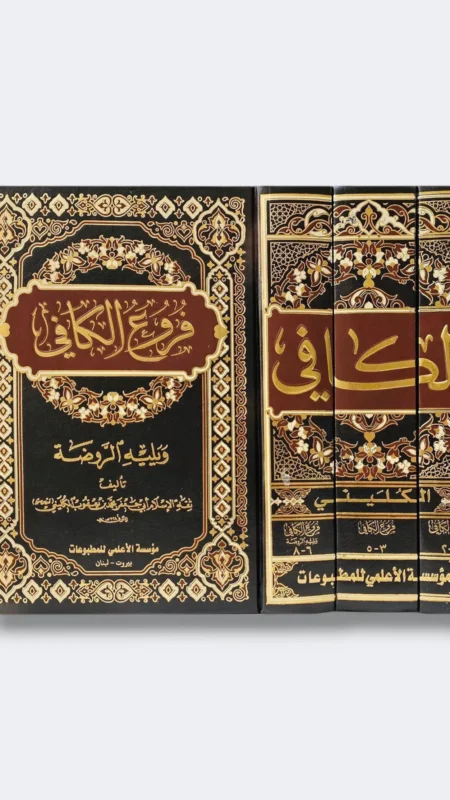 فروع الكافي
ويليه الروضة
تأليف
ثقة الإسلام أبي جعفر محمد بن يعقوب الكليني الرازي
مؤسسة الأعلمي للمطبوعات
بيروت - لبنان
لكافي
الكليني
فروع الكافي
ويليه الروضة
٦-٨
فروع الكافي
٣-٥
٢
مؤسسة الأعلمي للمطبوعات